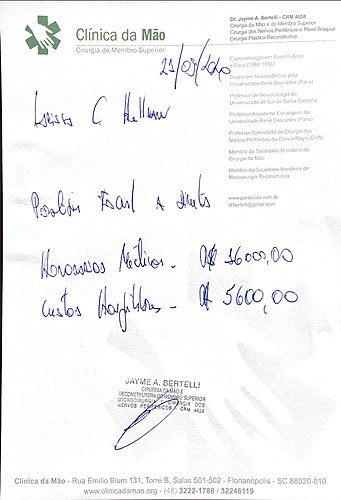 Clínica da Mão
Cirurgia do Membro Superior
Dr. Jayme A. Bertelli - CRM 4658
Cirurgia da Mão e do Membro Superior
Cirurgia dos Nervos Periféricos e Plexo Braquial
Cirurgia Plástica Reconstrutiva
Especialização em Buenos Aires
e Paris (1988-1993)
Doutor em Neurociências pela
Universidade René Descartes (Paris)
Professor de Neurocirurgia da
Universidade do Sul de Santa Catarina
Professor Assistente Estrangeiro da
Universidade René Descartes (Paris)
Professor Convidado de Cirurgia dos
Nervos Periféricos da Clínica Mayo (EUA)
Membro da Sociedade Brasileira de
Cirurgia da Mão
Membro da Sociedade Brasileira de
Microcirurgia Reconstrutiva
www.paralisias.com.br
drbertelli@gmail.com
C
Facial a direita
Honorários Médicos - R$ 36000,00
Custos Hospitalares - R$ 5600,00
JAYME A. BERTELLI
CIRURGIA DA MÃO E
RECONSTRUTORA DO MEMBRO SUPERIOR
MICROCIRURGIA E CIRURGIA DOS
NERVOS PERIFÉRICOS - CRM 4658
Clínica da Mão - Rua Emílio Blum 131, Torre B, Salas 501-502 - Florianópolis - SC 88020-010
www.clinicadamao.org - (48) 3222-1788 / 32246119